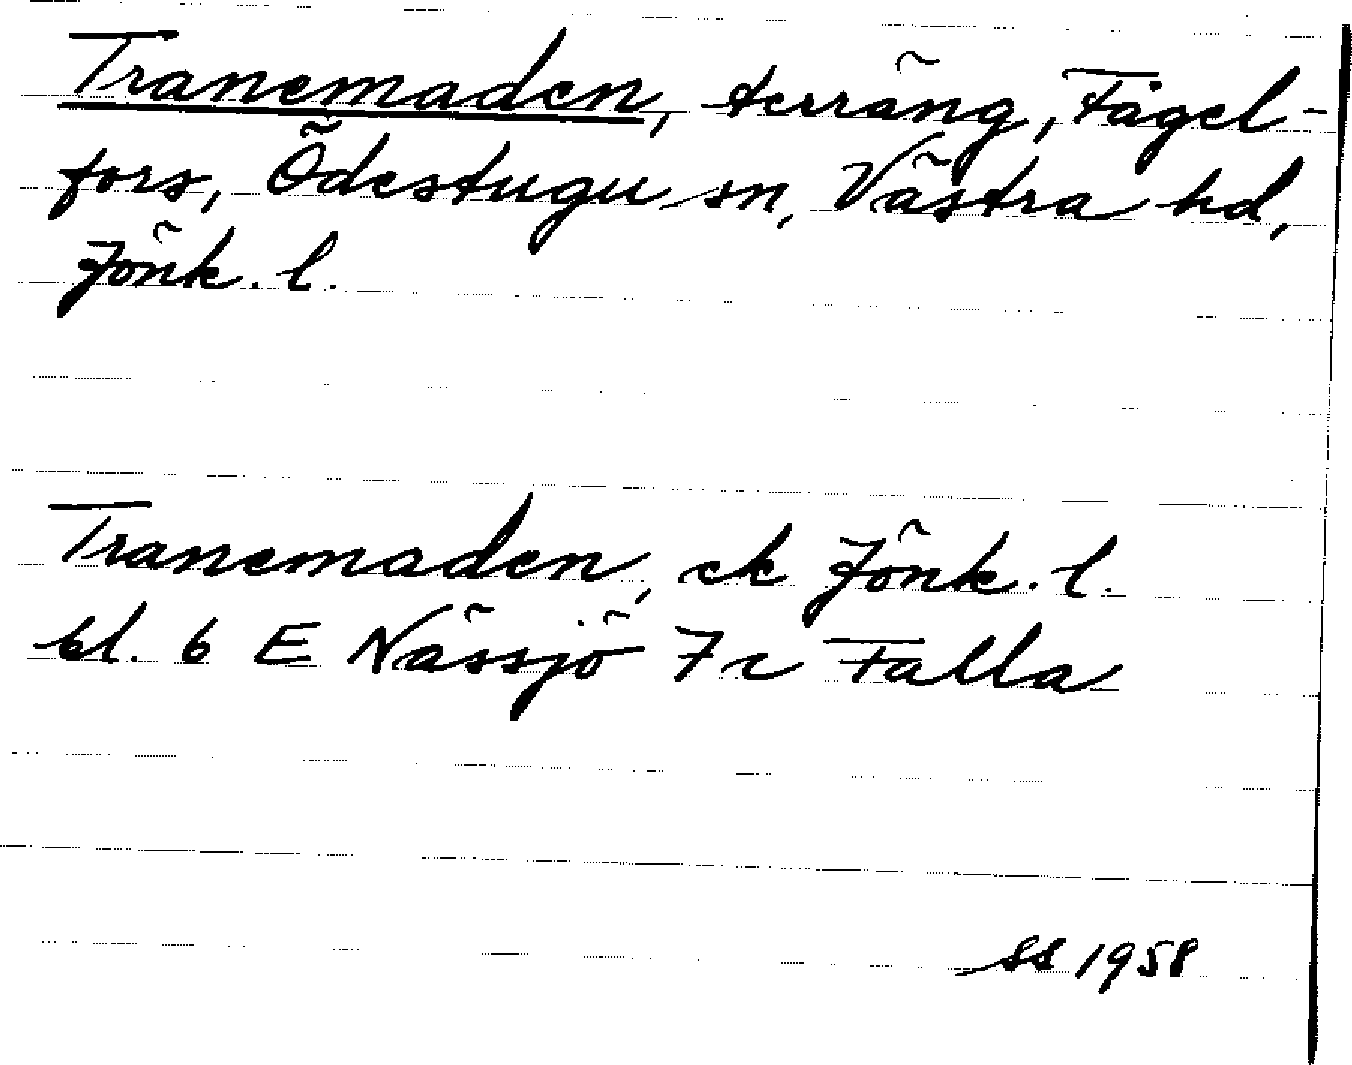 Tranemaden, terräng, Fågel-
fors, Ödestugu sn, Västra hd,
Jönk. l.
Tranemaden, ek Jönk. l.
bl. 6 E Nässjö 7c Falla
SS 1958